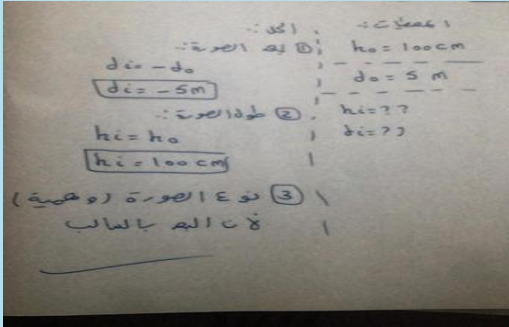 المعطيات:-
ho = 100cm
do = 5 m
hi = ??
di = ??
الحل:-
① بعد الصورة:-
di = -do
di = -5m
② طول الصورة:-
hi = ho
hi = 100 cm
③ نوع الصورة (وهمية)
لأن البعد بالسالب